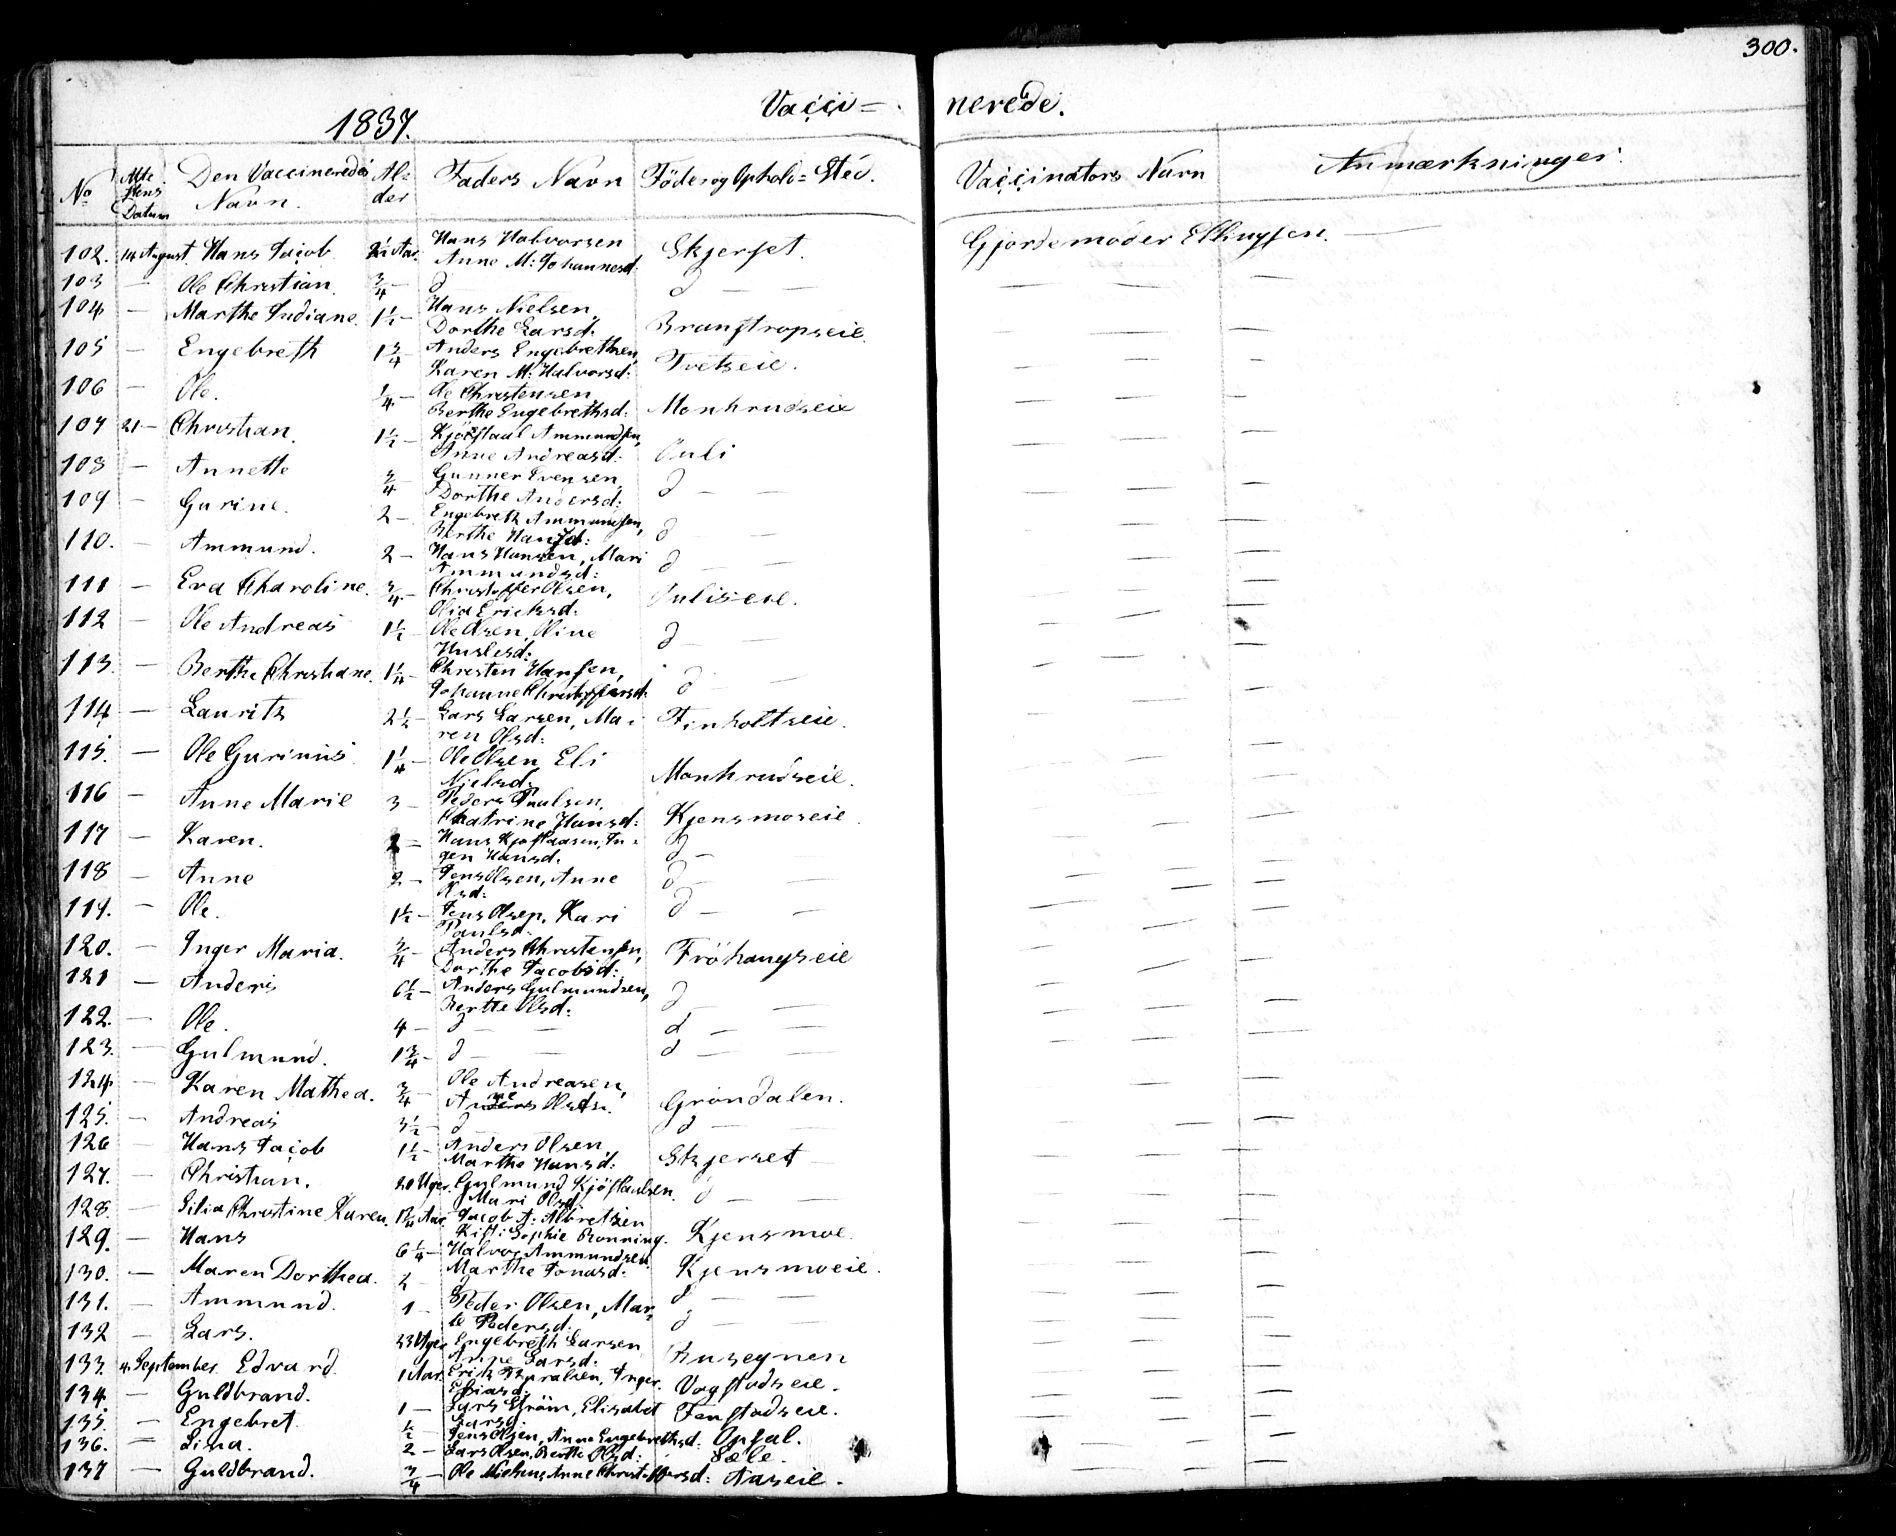 300.
1837.
Vacci = nerede.
No Atte stens Datum Den Vaccineredes Navn. Al= der Faders Navn Föde og Ophold= Sted. Vaccinators Navn Anmærkninger.
102. 14 August. Hans Jacob 2½ Aar. Hans Halvorsen Skjerset. Gjordemoder Ellingsen. —
Anne M: Johannesd.
103 — Ole Christian. ¾ — d d — —
104 — Marthe Indiane. 1½ — Hans Nielsen,
Dorthe Larsd. Branstropseie.
105 — Engebreth 1¾ — Anders Engebrethsen,
Karen M: Halvorsd: Tvetseie.
106 — Ole. ¼ — Ole Christensen,
Berthe Engebrethsd: Monkrudseie
107 21 — Christian. 1½ — Kjöstaul Ammundsen,
Anne Andreasd: Juli
108 — Annette ¾ Gunner Evensen,
Dorthe Andersd: d — —
109 — Gurine. 2 — Engebreth Ammundsen,
Berthe Hansd: d — —
110. — Ammund. 2 — Hans Hansen, Mari
Ammundsd: d — —
111 — Eva Charoline. ¾ — Christoffer Olsen,
Olia Ericksd: Juliseie.
112 — Ole Andreas 1½ — Ole Olsen, Oline
d — —
113. — Berthe Christiane. 1¼ — Christen Hansen,
Johanne Christoffersd. d — —
114 — Lauritz 2½ — Lars Larsen, Ma=
ren Olsd: Finholtseie.
115. — Ole Gurinius 1¼ — Ole Olsen Eli
Nielsd: Monkrudseie.
116 — Anne Marie 3 — Peders Paulsen,
Chatrine Hansd: Kjensmoseie
117 — Karen. 2 — Hans Kjøstaasen, In=
gen Hansd. d —
118 — Anne 2 — Jens Olsen, Anne
Olsd: d — —
119. — Ole. 1½ — Jens Olsen, Kari
Paulsd. d — —
120. — Inger Maria. ¾ — Anders Christensen,
Dorthe Jacobsd: Fröhaugseie
121 — Anders 6½ — Anders Gulmundsen,
Berthe Olsd: d — —
122. — Ole. 4 — d — — d — —
123. — Gulmund. 1¾ — d — — d — —
124 — Karen Mathea. ¾ — Ole Andreasen,
Anne Olsd. Gröndalen.
125. — Andreas 3½ — d — d —
126 — Hans Jacob 1½ — Anders Olsen,
Marthe Hansd: Skjerset —
127. — Christian. 20 Uger. Gulmund Kjöstaulsen.
Mari Olsd. d — —
128. — Silia Christine Karen. Aar Jacob A: Albretsen
Kisti Sophie Ronning. Kjensmoe.
129. — Hans 6¼ — Halvor Ammundsen.
Marthe Jonasd. Kjensmoeie.
130. — Maren Dorthea. 2 — d d — —
131. — Ammund. 1 — Peder Olsen, Mar=
te Pedersd. d —
132 — Lars. 23 Uger Engebreth Larsen
Anne Larsd. Busegnen
133. 4 September Edvard 1 Aar. Erik Inger.
Eliasd. Vogstadseie.
134. — Guldbrand. 1 — Lars Ström, Elisabet
Larsd Fenstadseie.
135. — Engebret ½ — Jens Olsen, Anne Engebrethsd: Opsal.
136. — Lina. 2 — Lars Olsen, Berthe Olsd: Sæle.
137 — Guldbrand. ¾ — Ole Nielsen, Anne Christoffersd: Aaseie.